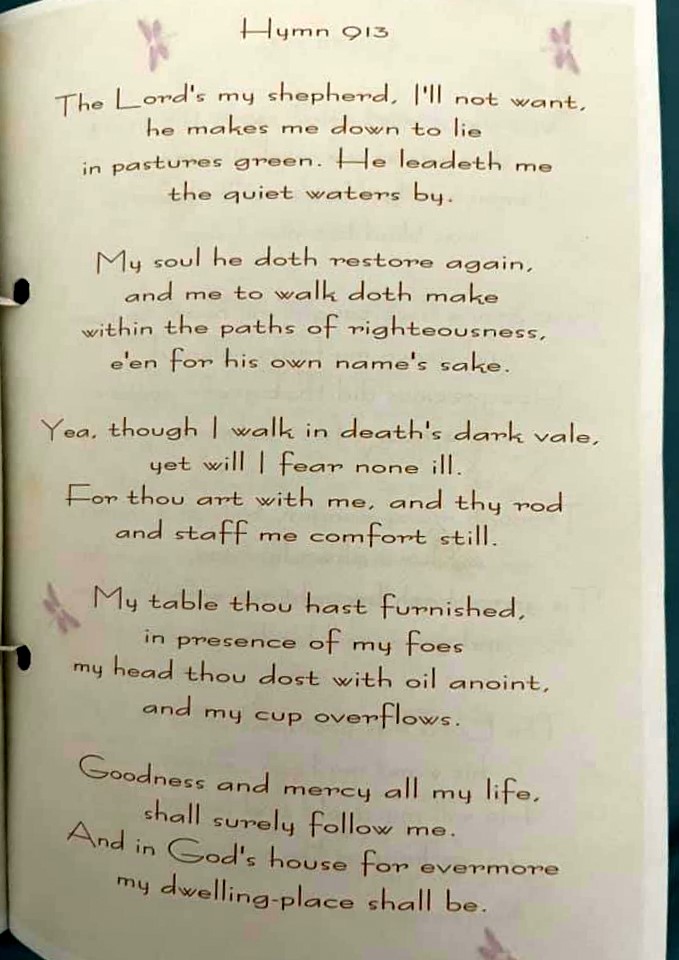 Hymn 913
The Lord's my shepherd, I'll not want,
he makes me down to lie
in pastures green. He leadeth me
the quiet waters by.
My soul he doth restore again,
and me to walk doth make
within the paths of righteousness,
e'en for his own name's sake.
Yea, though I walk in death's dark vale,
yet will I fear none ill.
For thou art with me, and thy rod
and staff me comfort still.
My table thou hast furnished,
in presence of my foes
my head thou dost with oil anoint,
and my cup overflows.
Goodness and mercy all my life,
shall surely follow me.
And in God's house for evermore
my dwelling-place shall be.